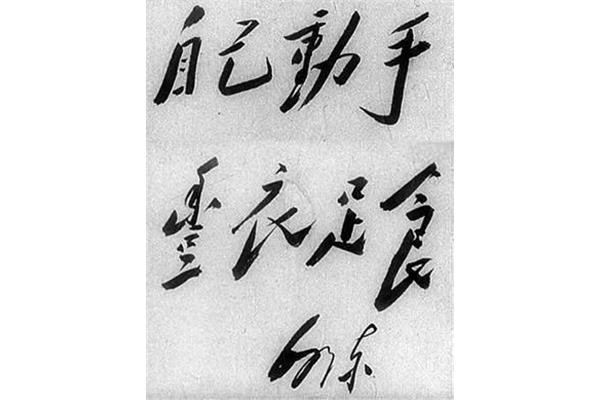 自己動手
豐衣足食
澤东